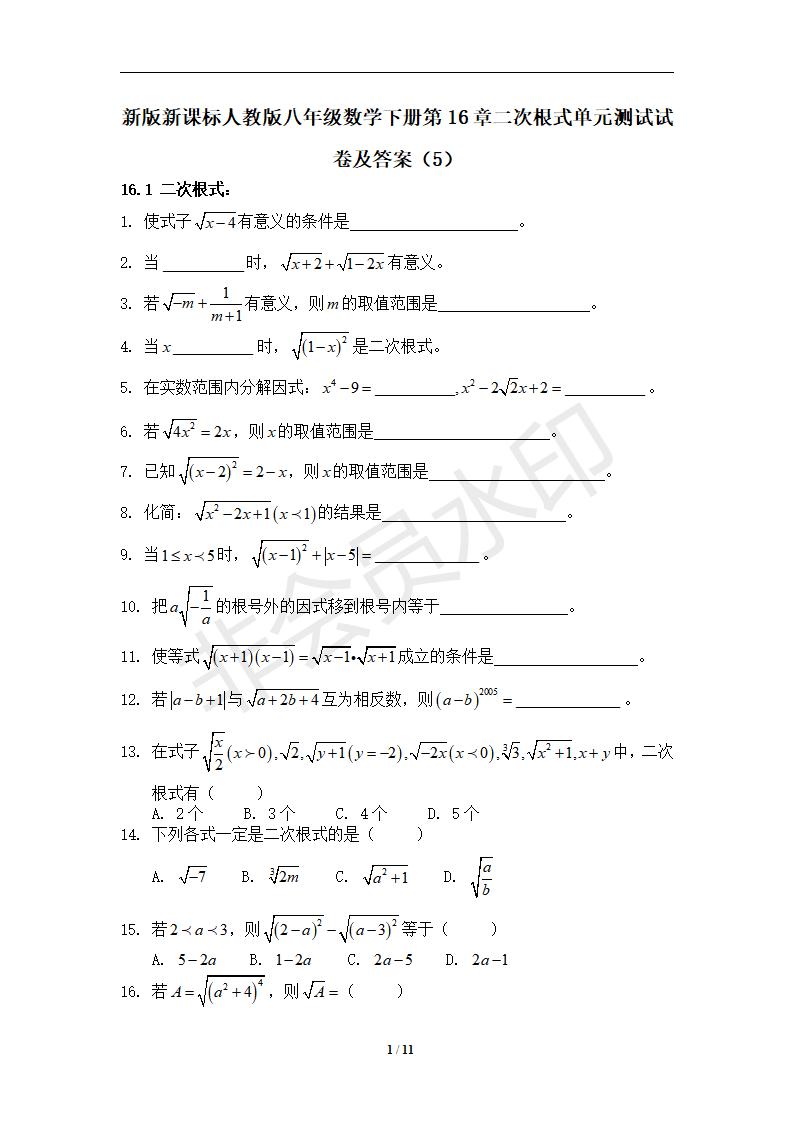 新版新课标人教版八年级数学下册第 16 章二次根式单元测试试
卷及答案（5）
16.1 二次根式：
1. 使式子 √(x−4) 有意义的条件是＿＿＿＿＿＿。
2. 当＿＿＿＿时，√(x+2)+√(1−2x) 有意义。
3. 若 √(−m)+1/(m+1) 有意义，则 m 的取值范围是＿＿＿＿＿＿。
4. 当 x＿＿＿＿时，√((1−x)²) 是二次根式。
5. 在实数范围内分解因式：x⁴−9=＿＿＿＿,x²−2√2x+2=＿＿＿＿。
6. 若 √(4x²)=2x，则 x 的取值范围是＿＿＿＿＿＿。
7. 已知 √((x−2)²)=2−x，则 x 的取值范围是＿＿＿＿＿＿。
8. 化简：√(x²−2x+1)(x≺1) 的结果是＿＿＿＿＿＿。
9. 当 1≤x≺5 时，√((x−1)²)+|x−5|=＿＿＿＿。
10. 把 a√(−1/a) 的根号外的因式移到根号内等于＿＿＿＿＿。
11. 使等式 √((x+1)(x−1))=√(x−1)•√(x+1) 成立的条件是＿＿＿＿＿。
12. 若 |a−b+1| 与 √(a+2b+4) 互为相反数，则 (a−b)²⁰⁰⁵=＿＿＿＿。
13. 在式子 √(x/2)(x≻0),√2,√(y+1)(y=−2),√(−2x)(x≺0),∛3,√(x²+1),x+y 中，二次
根式有（　　）
A. 2个　B. 3个　C. 4个　D. 5个
14. 下列各式一定是二次根式的是（　　）
A. √(−7)　B. ∛(2m)　C. √(a²+1)　D. √(a/b)
15. 若 2≺a≺3，则 √((2−a)²)−√((a−3)²) 等于（　　）
A. 5−2a　B. 1−2a　C. 2a−5　D. 2a−1
16. 若 A=√((a²+4)⁴)，则 √A=（　　）
非会员水印
1 / 11